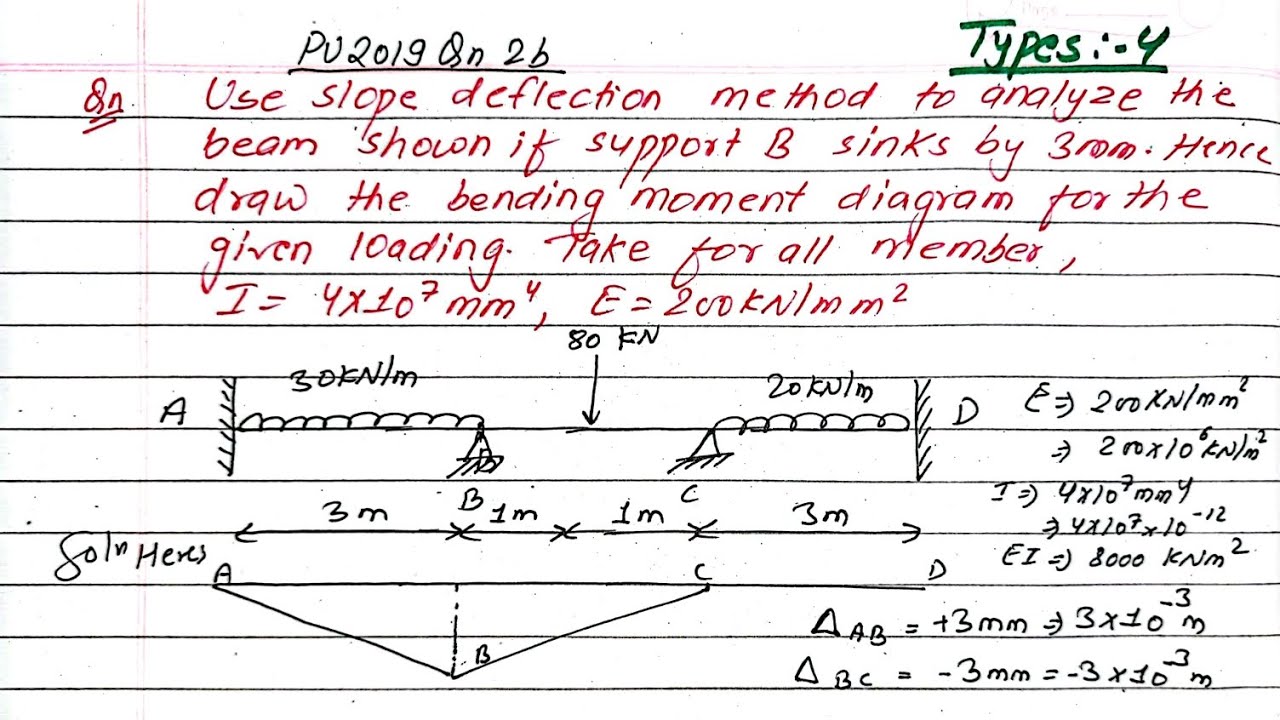 PU 2019 Qn 2b
Types:-4
Qn Use slope deflection method to analyze the
beam shown if support B sinks by 3mm. Hence
draw the bending moment diagram for the
given loading. Take for all member,
I = 4×10⁷ mm⁴, E = 200KN/mm²
80 KN
30KN/m
20KN/m
A
D
B
C
E ⇒ 200KN/mm²
⇒ 200×10⁶KN/m²
I ⇒ 4×10⁷mm4
⇒ 4×10⁷×10⁻¹²
EI ⇒ 8000 KNm²
3m
1m
1m
3m
Soln Heres
A
C
D
B
Δ AB = +3mm ⇒ 3×10⁻³ m
Δ BC = -3mm = -3×10⁻³ m